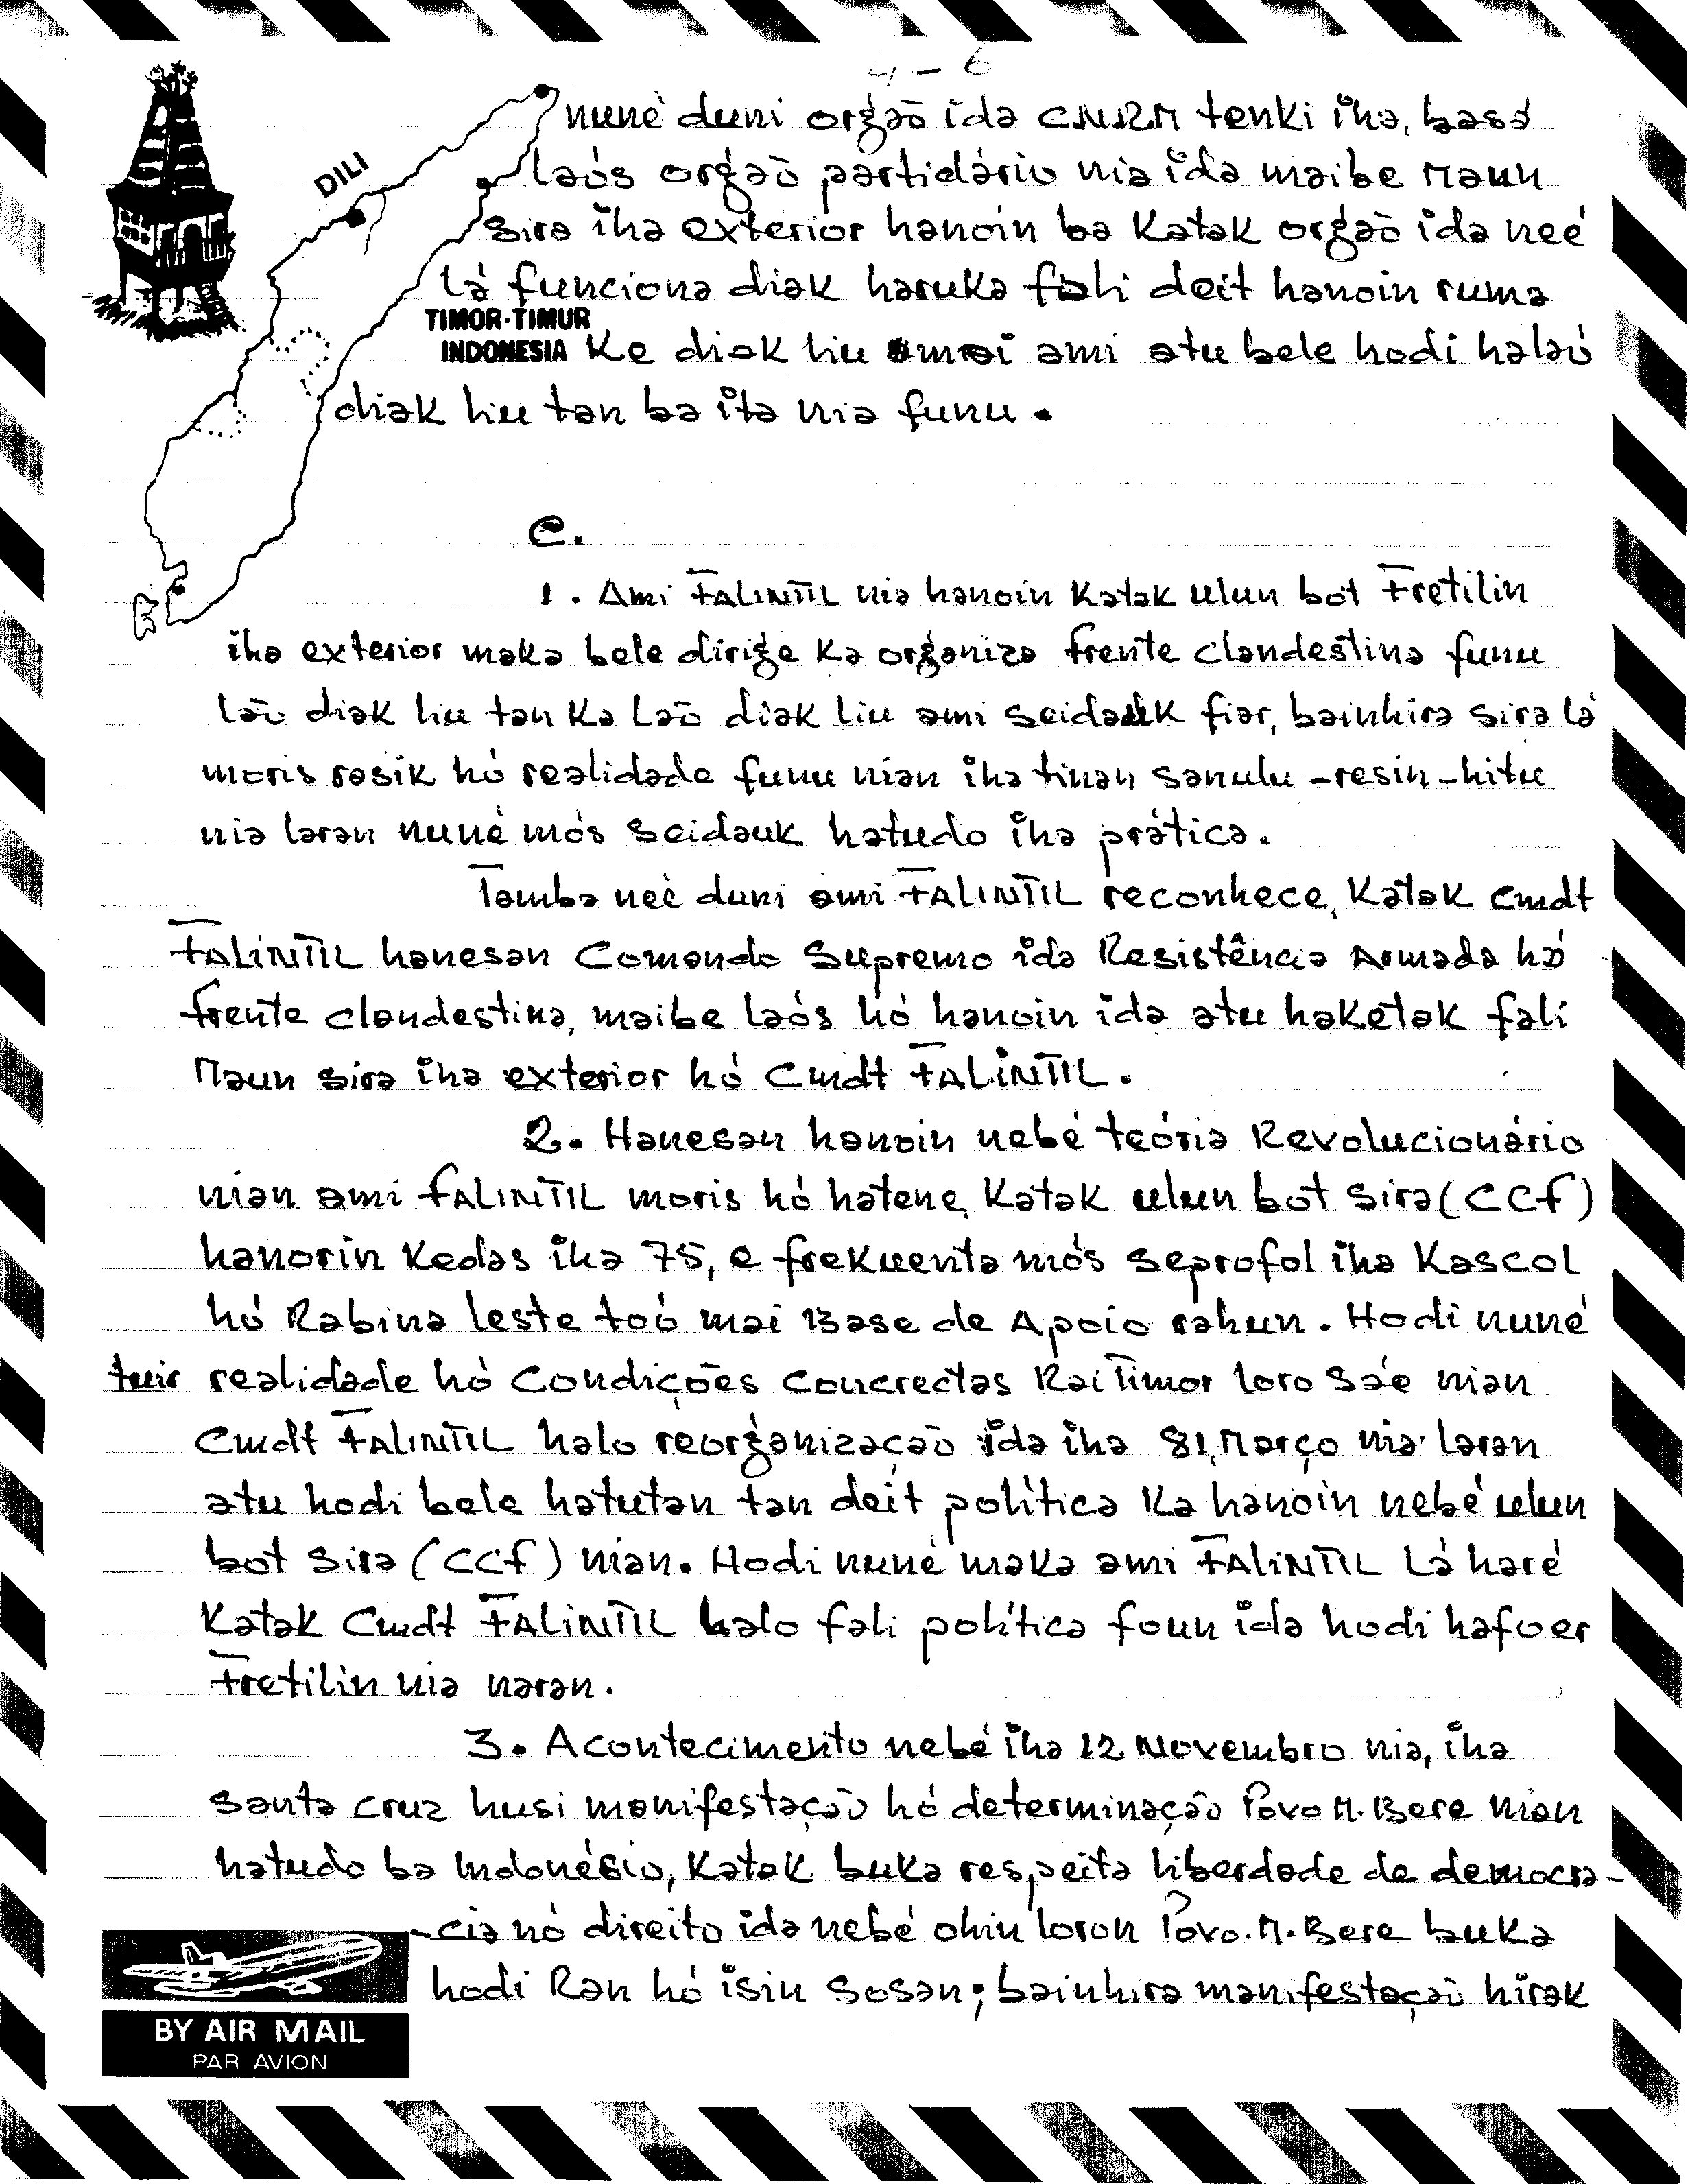 4 - 6
nuné duni orgaõ ida CNRM tenki iha, basa
DILI
laós orgaõ partidário nia ida maibe Maun
sira iha exterior hanoin ba Katak orgaõ ida neé
lá funciona diak haruka fali deit hanoin ruma
TIMOR·TIMUR
INDONESIA Ke diak liu mai ami atu bele hodi halaó
diak liu tan ba ita nia funu.
C.
1. Ami FALINTIL nia hanoin Katak ulun bot Fretilin
iha exterior maka bele dirige Ka organiza frente clandestina funu
laõ diak liu tan Ka laõ diak liu ami seidauk fiar, bainhira sira lá
moris rasik hó realidade funu nian iha tinan sanulu-resin-hitu
nia laran nuné mós seidauk hatudo iha prática.
Tamba neé duni ami FALINTIL reconhece, Katak Cmdt
FALINTIL hanesan Comando Supremo ida Resistência Armada hó
frente clandestina, maibe laós hó hanoin ida atu haketak fali
Maun sira iha exterior hó Cmdt FALINTIL.
2. Hanesan hanoin nebé teória Revolucionário
nian ami FALINTIL moris hó hatene, Katak ulun bot sira (CCF)
hanorin Kedas iha 75, e frekuenta mós seprofol iha Kascol
hó Rabina leste toó mai Base de Apoio rahun. Hodi nuné
tuir realidade hó Condições concrectas Rai Timor loro Sáe nian
Cmdt FALINTIL halo reorganizaçaõ ida iha 81, Março nia laran
atu hodi bele hatutan tan deit política Ka hanoin nebé ulun
bot sira (CCF) nian. Hodi nuné maka ami FALINTIL Lá haré
Katak Cmdt FALINTIL halo fali política foun ida hodi hafoer
Fretilin nia naran.
3. Acontecimento nebé iha 12 Novembro nia, iha
Santa Cruz husi manifestaçaõ hó determinaçaõ Povo M. Bere nian
hatudo ba Indonésio, Katak buka respeita liberdade de democra-
-cia nó direito ida nebé ohin loron Povo. M. Bere buka
hodi Ran hó isin Sosan; bainhira manifestaçaõ hirak
BY AIR MAIL
PAR AVION